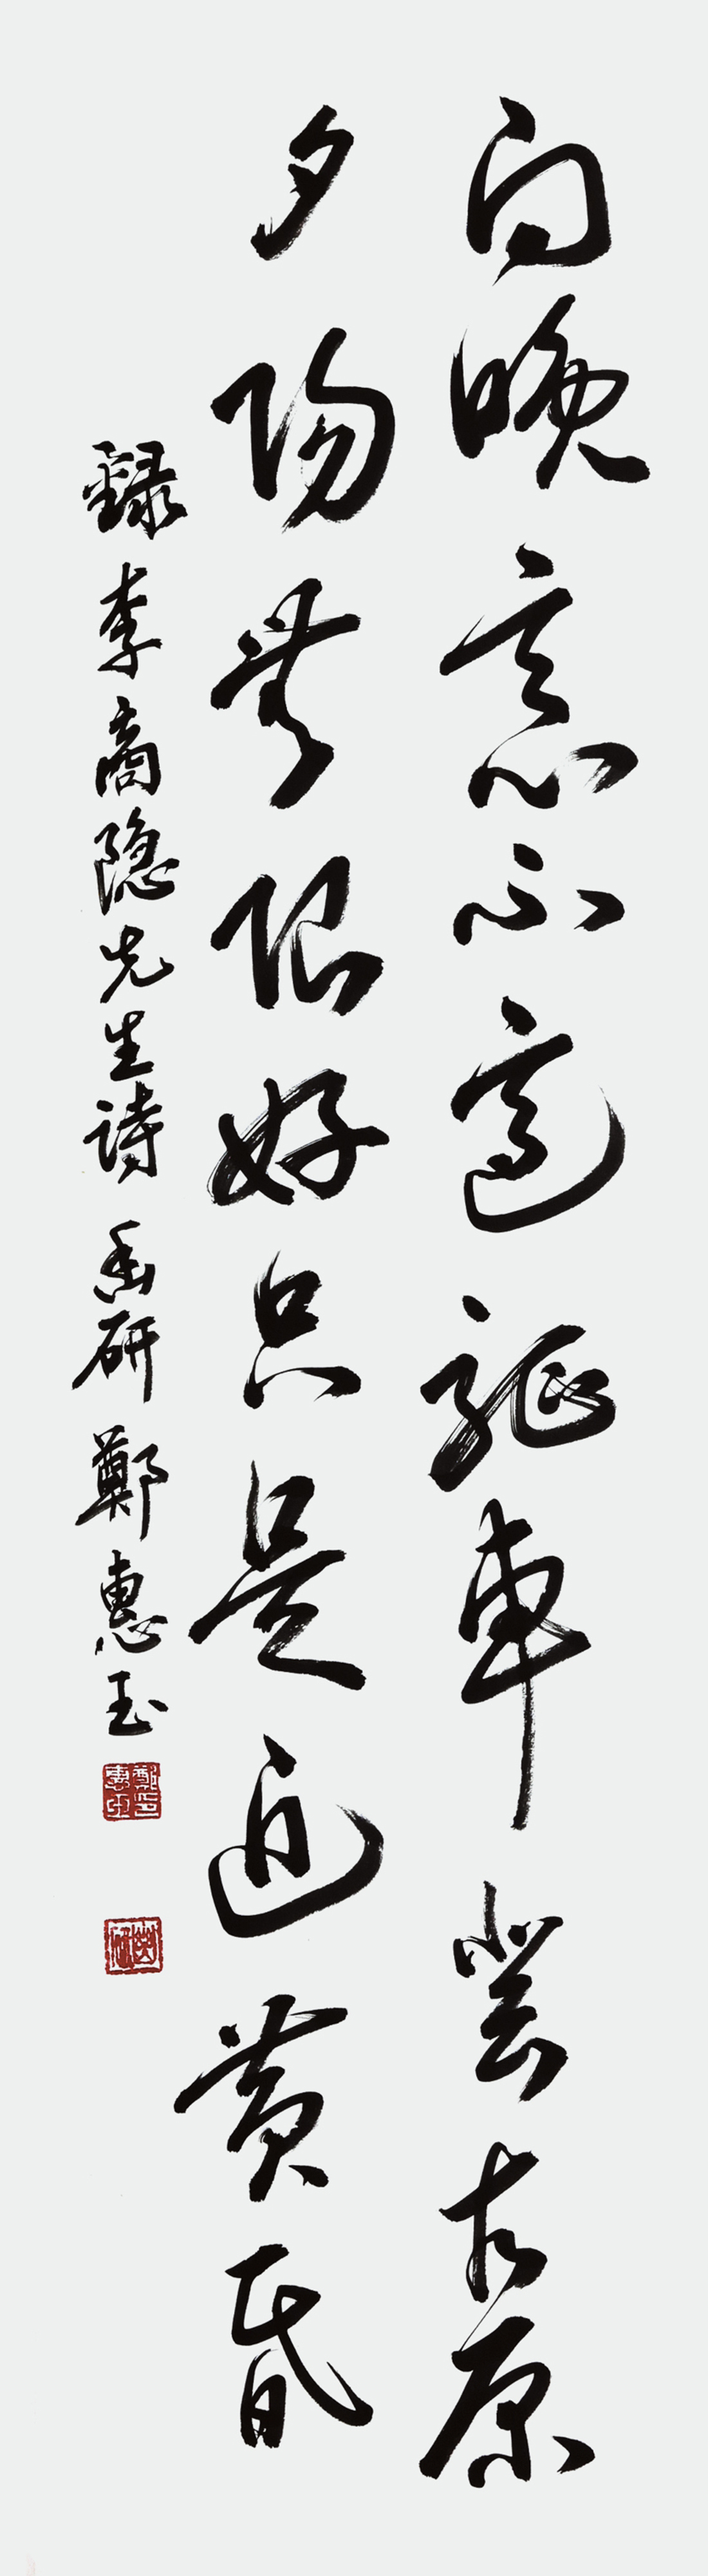 向晚意不適驅車登古原
夕陽無限好只是近黃昏
錄李商隱先生詩 幽研 鄭惠玉
鄭惠玉印
幽研